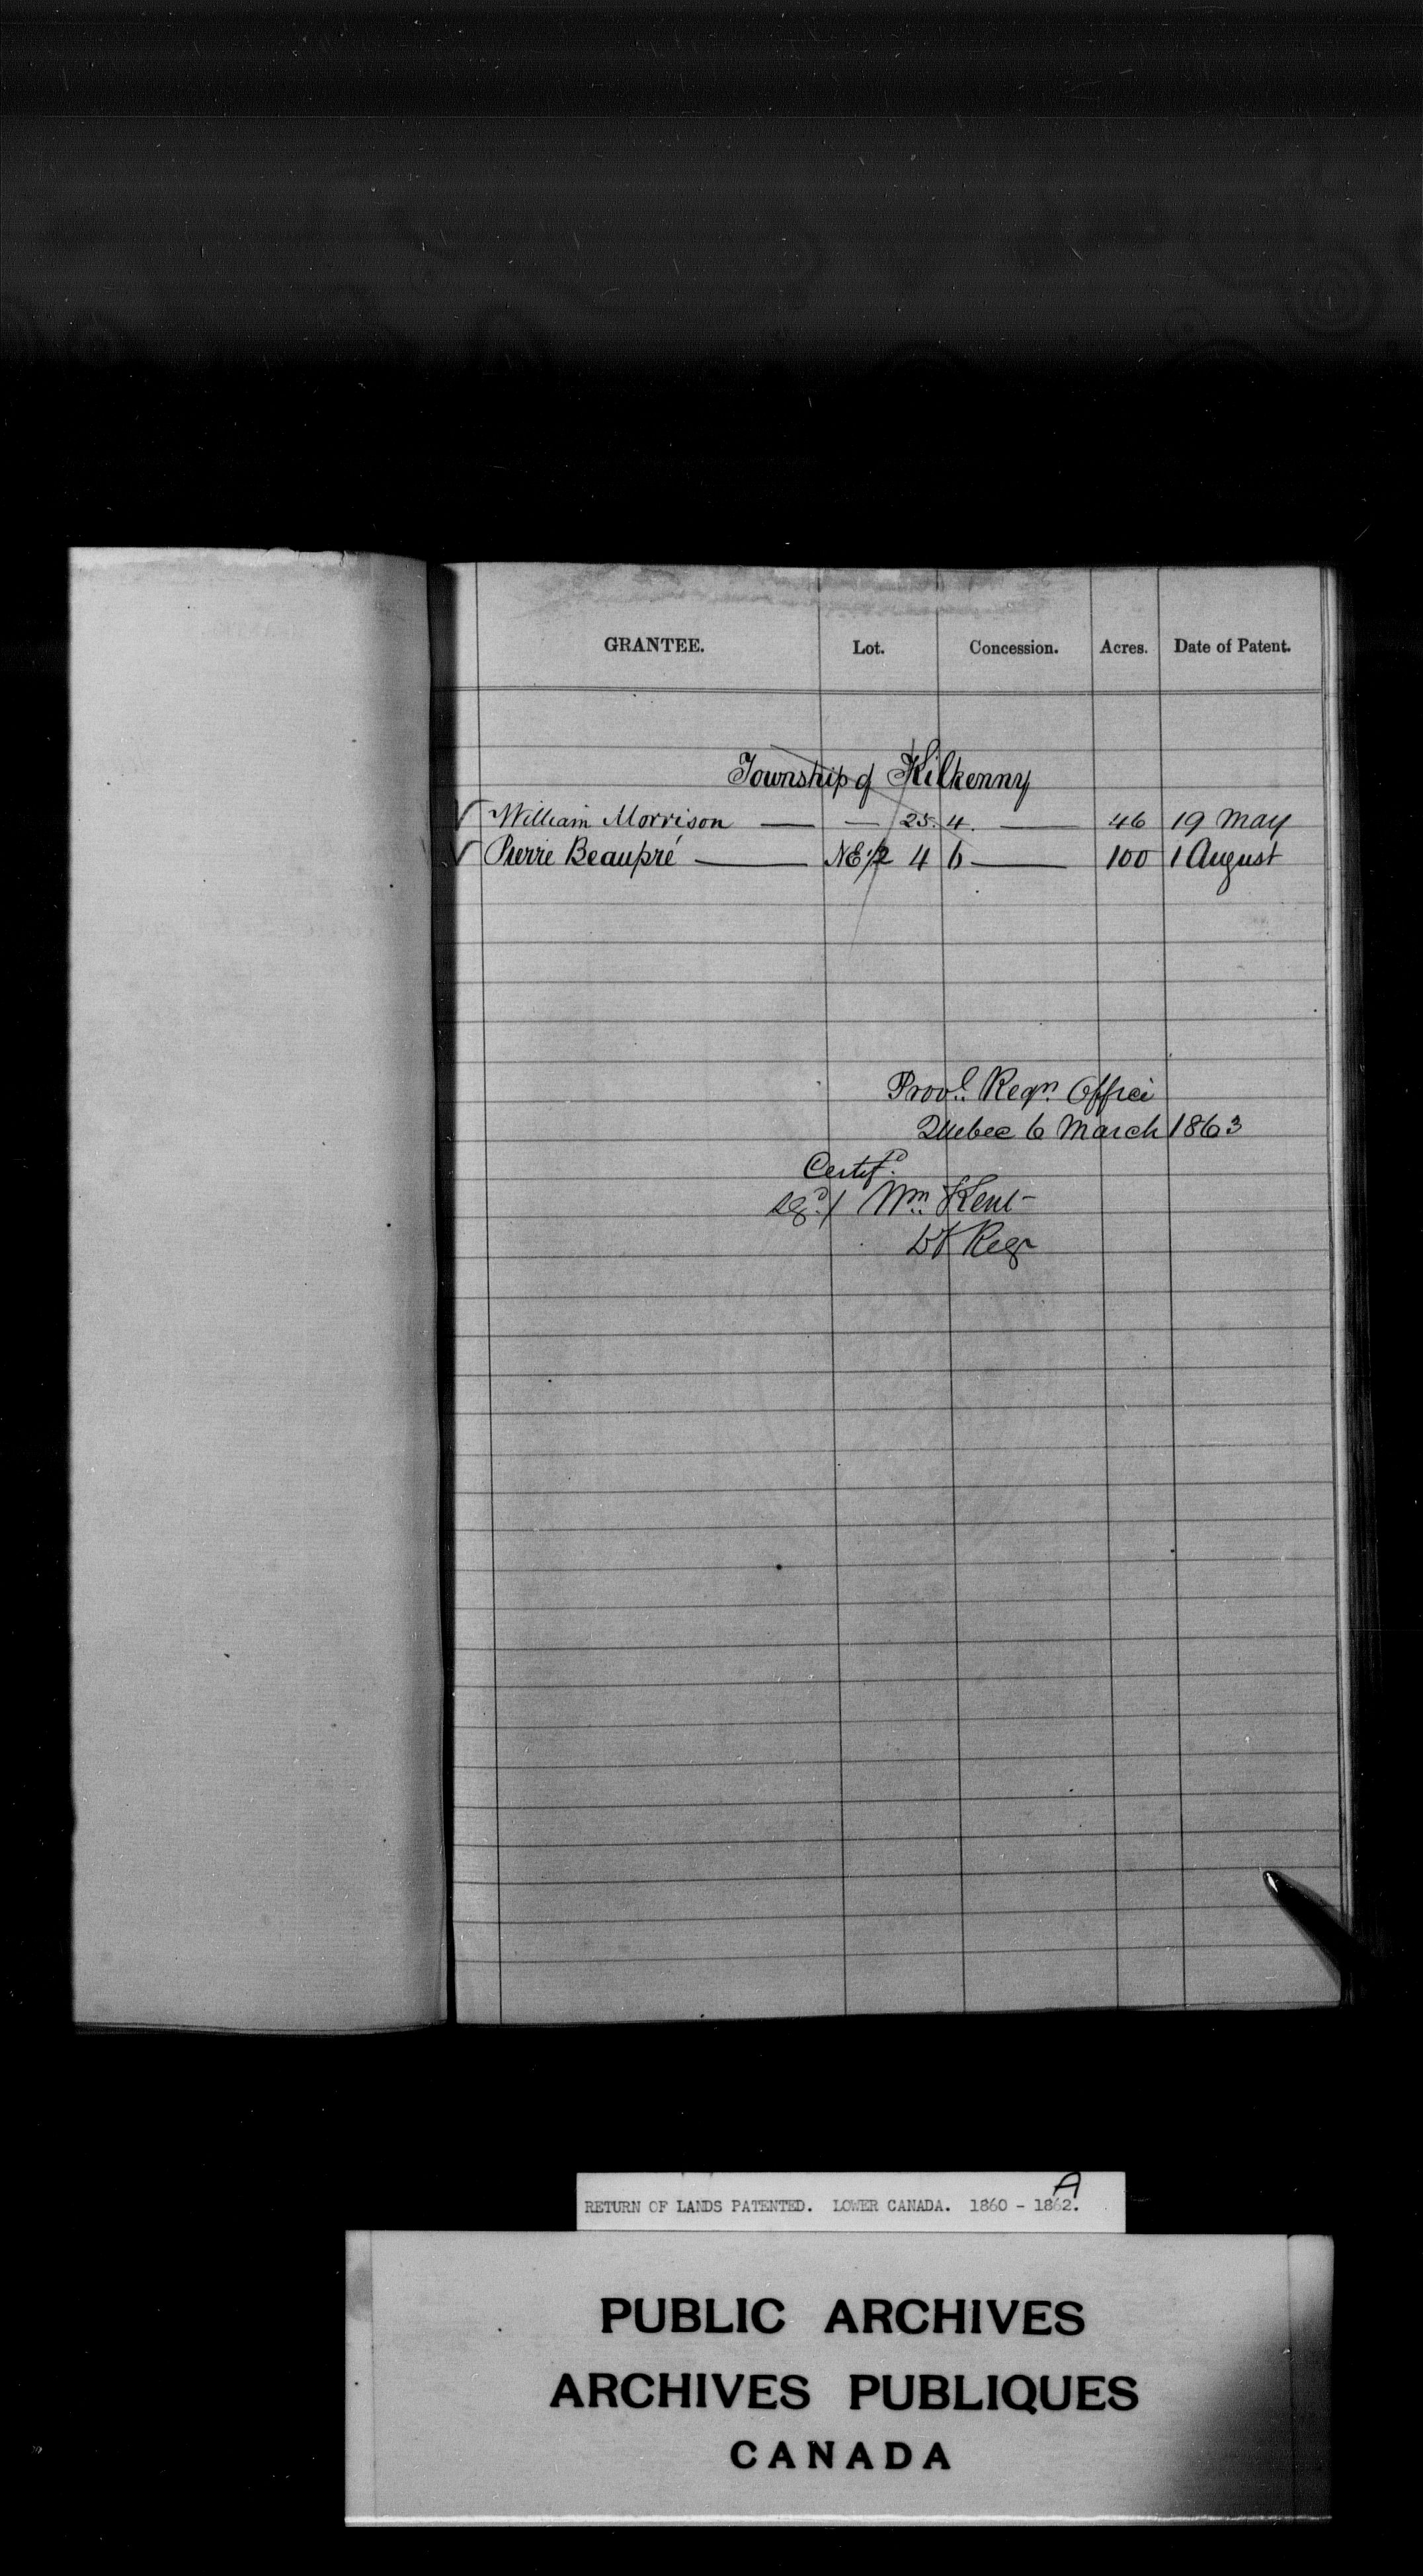 GRANTEE. Lot. Concession. Acres. Date of Patent.
Township of Kilkenny
William Morrison — — 25. 4. — 46 19 May
Pierre Beaupré — NE 1/2 4 6 — 100 1 August
Provl. Regn. Office
Quebec 6 March 1863
Certifd.
sgd/ Wm. Kent
Dy Regr
RETURN OF LANDS PATENTED. LOWER CANADA. 1860 - 1862. A
PUBLIC ARCHIVES
ARCHIVES PUBLIQUES
CANADA